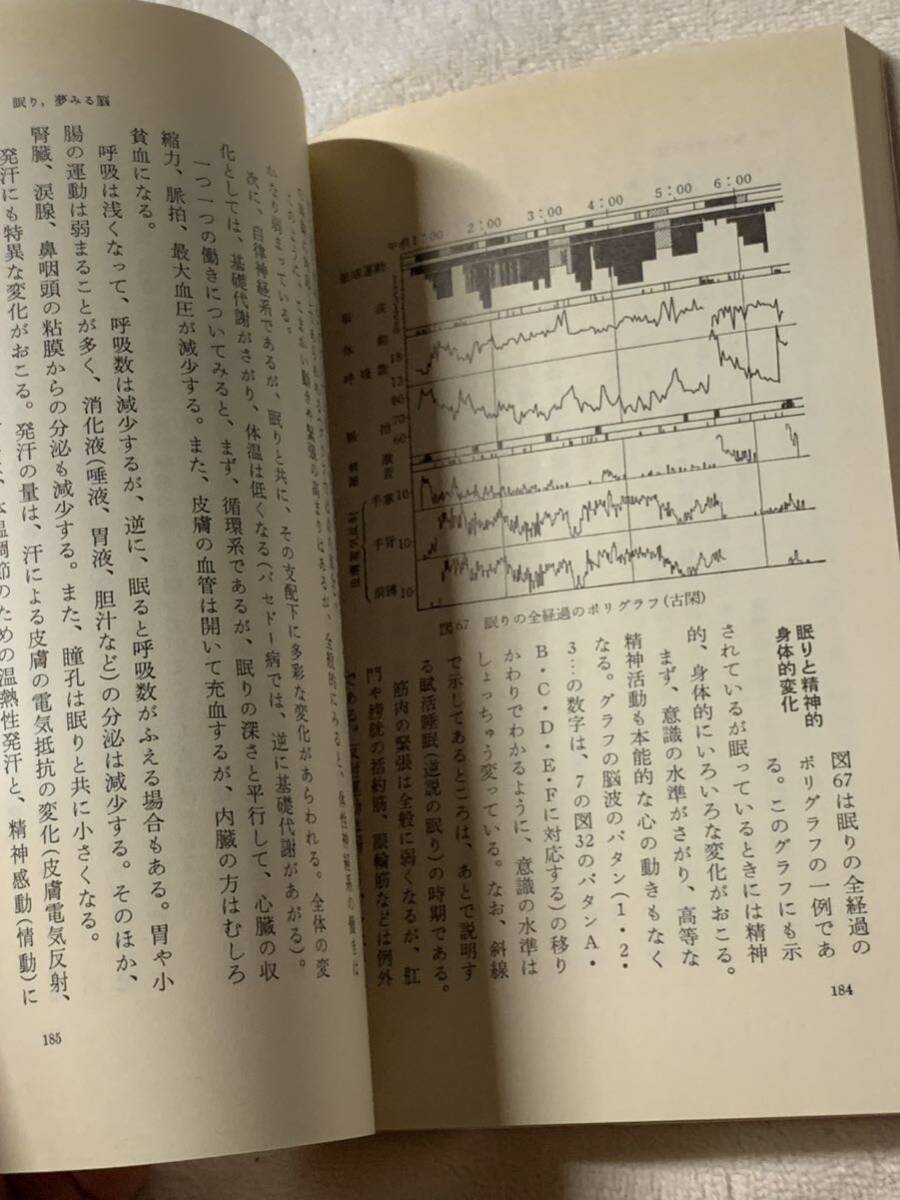 午前1:00 2:00 3:00 4:00 5:00 6:00
眼球運動
脳波
体動
呼吸数
18
13
80
70
脈拍
60
手掌
10
手背
10
前膊
10
図67 眠りの全経過のポリグラフ(古閑)
眠りと精神的
身体的変化
図67は眠りの全経過の
ポリグラフの一例であ
る。このグラフにも示
されているが眠っているときには精神
的、身体的にいろいろな変化がおこる。
まず、意識の水準がさがり、高等な
精神活動も本能的な心の動きもなく
なる。グラフの脳波のパタン(1・2・
3…の数字は、7の図32のパタンA・
B・C・D・E・Fに対応する)の移り
かわりでわかるように、意識の水準は
しょっちゅう変っている。なお、斜線
で示してあるところは、あとで説明す
る賦活睡眠(逆説の眠り)の時期である。
筋肉の緊張は全般に弱くなるが、肛
門や膀胱の括約筋、眼輪筋などは例外
である。
184
眠り,夢みる脳
かなり弱まっている。
次に、自律神経系であるが、眠りと共に、その支配下に多彩な変化があらわれる。全体の変
化としては、基礎代謝がさがり、体温は低くなる(バセドー病では、逆に基礎代謝があがる)。
一つ一つの働きについてみると、まず、循環系であるが、眠りの深さと平行して、心臓の収
縮力、脈拍、最大血圧が減少する。また、皮膚の血管は開いて充血するが、内臓の方はむしろ
貧血になる。
呼吸は浅くなって、呼吸数は減少するが、逆に、眠ると呼吸数がふえる場合もある。胃や小
腸の運動は弱まることが多く、消化液(唾液、胃液、胆汁など)の分泌は減少する。そのほか、
腎臓、涙腺、鼻咽頭の粘膜からの分泌も減少する。また、瞳孔は眠りと共に小さくなる。
発汗にも特異な変化がおこる。発汗の量は、汗による皮膚の電気抵抗の変化(皮膚電気反射、
体温調節のための温熱性発汗と、精神感動(情動)に
185